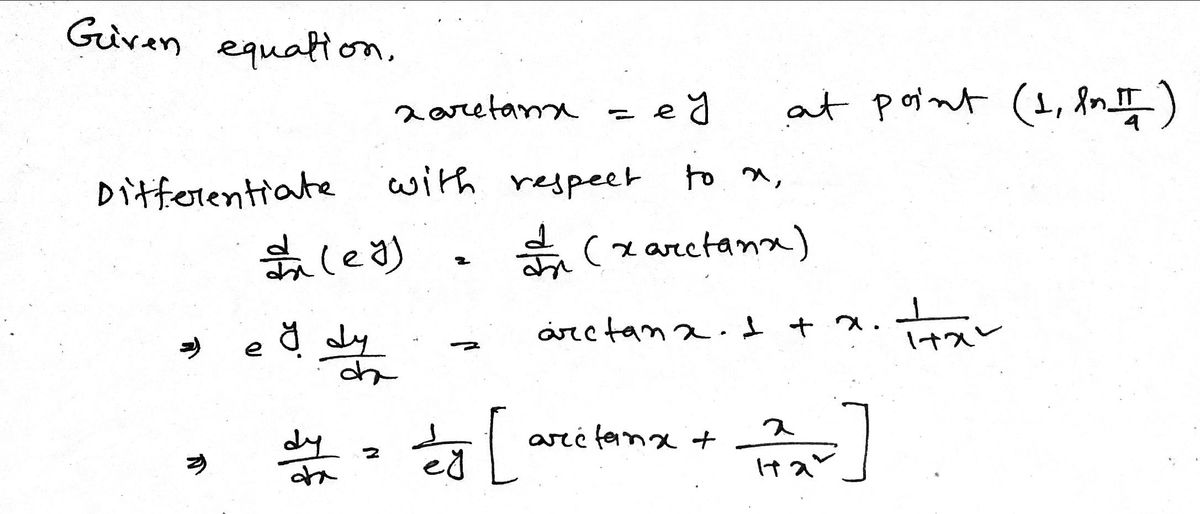 Given equation,
x arctanx = e^y at point (1, ln π/4)
Differentiate with respect to x,
d/dx (e^y) = d/dx (x arctanx)
⇒ e^y. dy/dx = arctanx . 1 + x. 1/(1+x²)
⇒ dy/dx = 1/e^y [ arctanx + x/(1+x²) ]